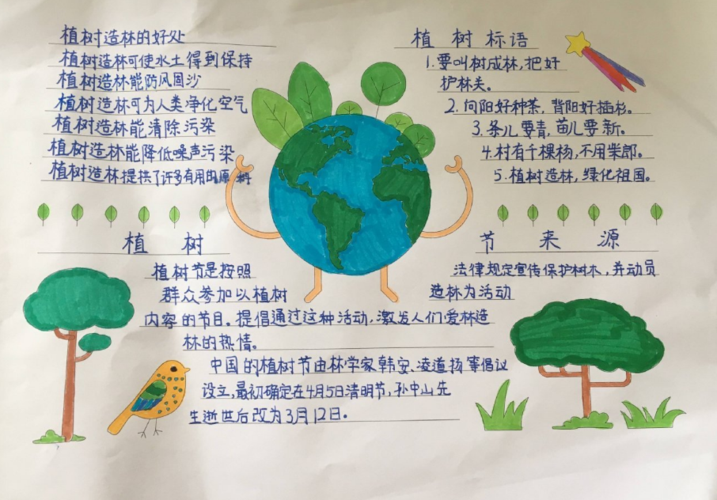 植树造林的好处
植树造林可使水土得到保持
植树造林能防风固沙
植树造林可为人类净化空气
植树造林能清除污染
植树造林能降低噪声污染
植树造林提供了许多有用的原材
植树标语
1.要叫树成林,把好
护林关。
2.向阳好种茶,背阳好插杉。
3.条儿要青,苗儿要新。
4.村有千棵杨,不用柴郎。
5.植树造林,绿化祖国。
植树 节来源
植树节是按照 法律规定宣传保护树木,并动员
群众参加以植树 造林为活动
内容的节目。提倡通过这种活动,激发人们爱林造
林的热情。
中国的植树节由林学家韩安、凌道扬等倡议
设立,最初确定在4月5日清明节,孙中山先
生逝世后改为3月12日。